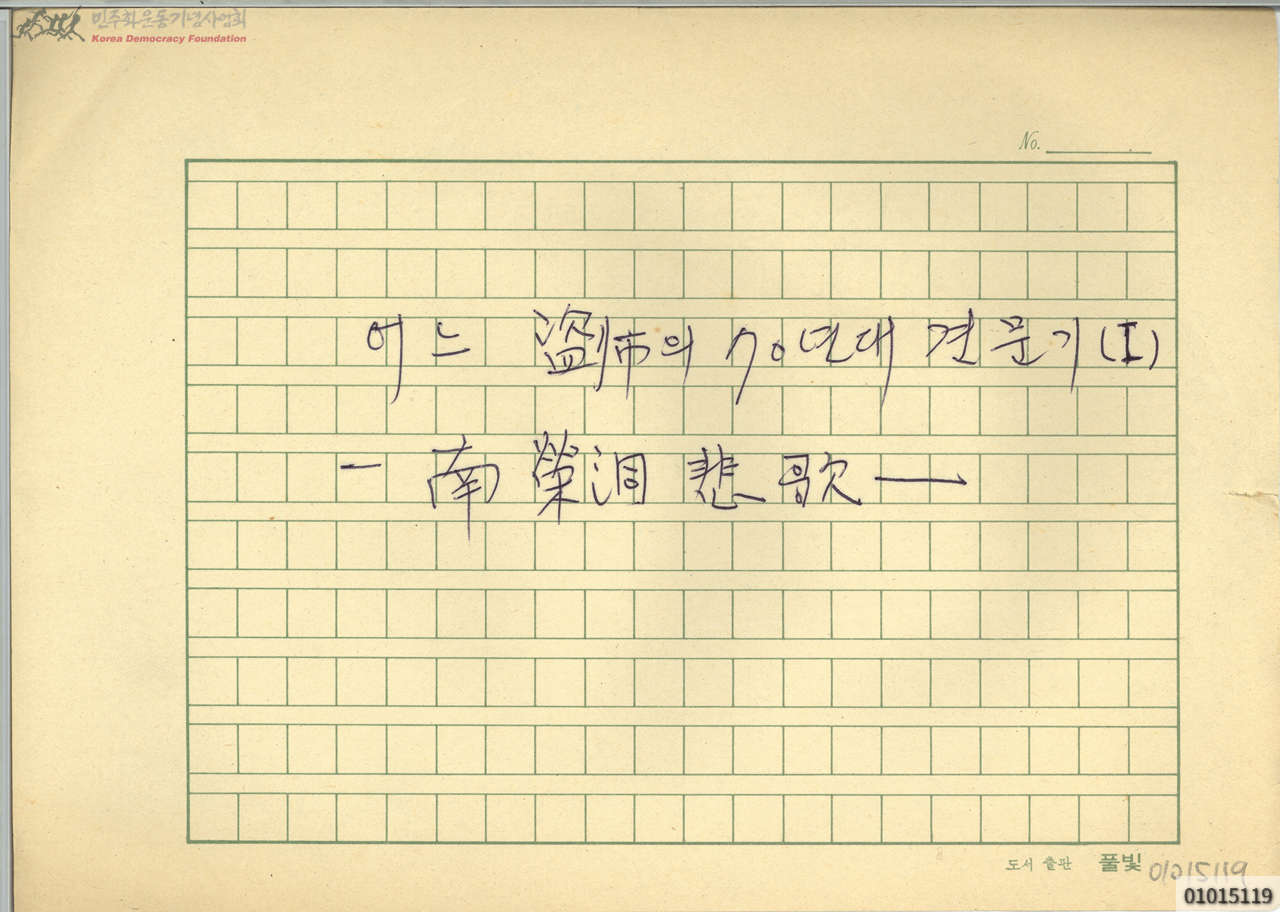 민주화운동기념사업회
Korea Democracy Foundation
No.
어느 盜帥의 70년대 견문기(I)
- 南營洞 悲歌 —
도서 출판 풀빛
01015119
01015119